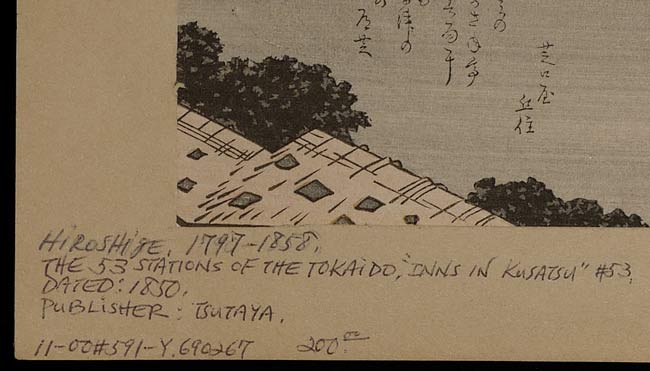 芝口屋
丘住
HIROSHIGE, 1797-1858,
THE 53 STATIONS OF THE TOKAIDO, "INNS IN KUSATSU" #53,
DATED: 1850,
PUBLISHER: TSUTAYA,
11-00#591-Y.690267 200.00